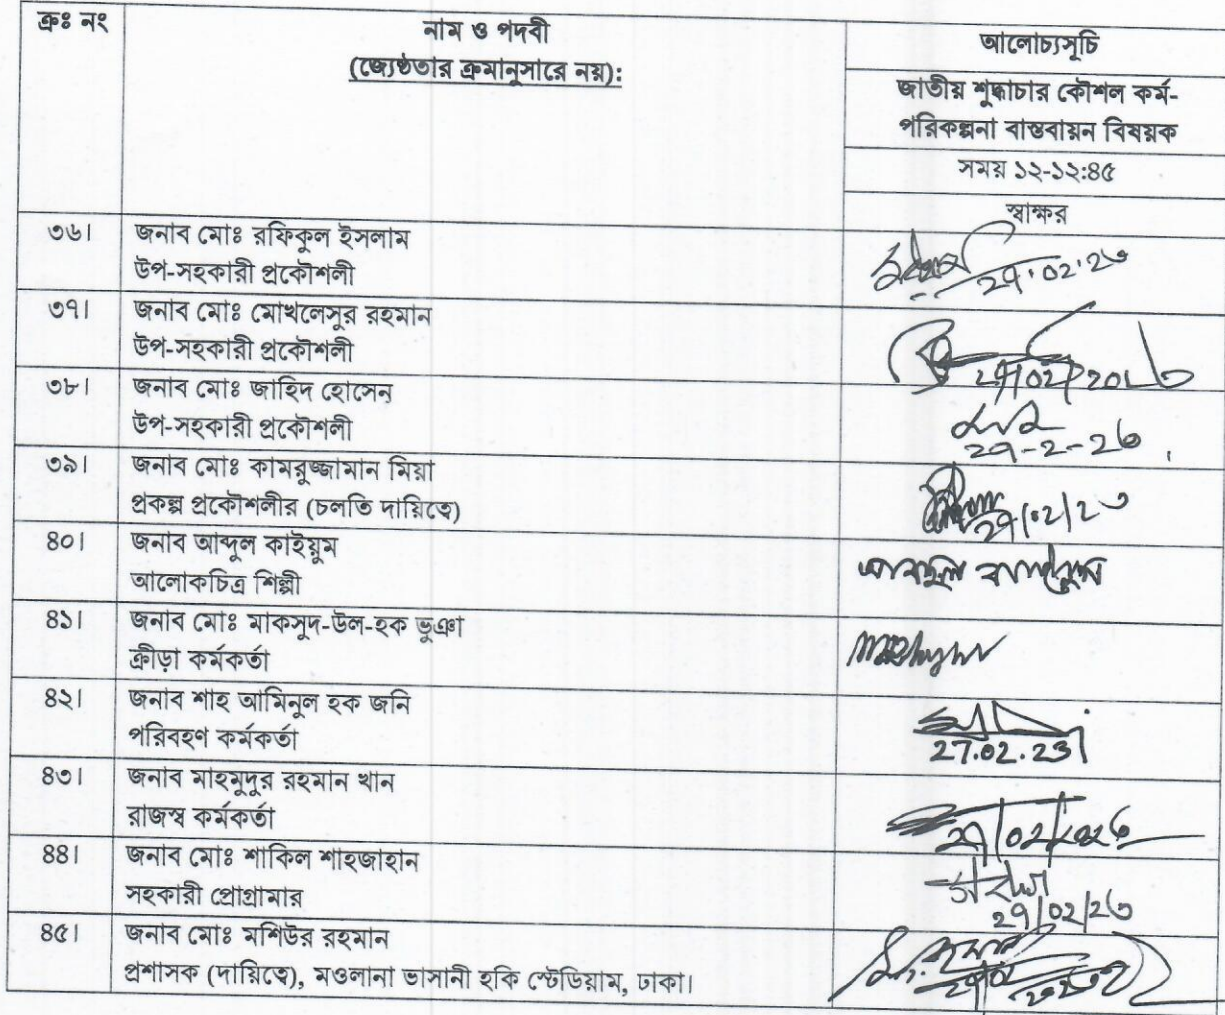 ক্রঃ নং
নাম ও পদবী
(জ্যেষ্ঠতার ক্রমানুসারে নয়):
আলোচ্যসূচি
জাতীয় শুদ্ধাচার কৌশল কর্ম-
পরিকল্পনা বাস্তবায়ন বিষয়ক
সময় ১২-১২:৪৫
স্বাক্ষর
৩৬। জনাব মোঃ রফিকুল ইসলাম
উপ-সহকারী প্রকৌশলী
৩৭। জনাব মোঃ মোখলেসুর রহমান
উপ-সহকারী প্রকৌশলী
৩৮। জনাব মোঃ জাহিদ হোসেন
উপ-সহকারী প্রকৌশলী
৩৯। জনাব মোঃ কামরুজ্জামান মিয়া
প্রকল্প প্রকৌশলীর (চলতি দায়িত্বে)
৪০। জনাব আব্দুল কাইয়ুম
আলোকচিত্র শিল্পী
৪১। জনাব মোঃ মাকসুদ-উল-হক ভুঞা
ক্রীড়া কর্মকর্তা
৪২। জনাব শাহ আমিনুল হক জনি
পরিবহণ কর্মকর্তা
27.02.23
৪৩। জনাব মাহমুদুর রহমান খান
রাজস্ব কর্মকর্তা
৪৪। জনাব মোঃ শাকিল শাহজাহান
সহকারী প্রোগ্রামার
৪৫। জনাব মোঃ মশিউর রহমান
প্রশাসক (দায়িত্বে), মওলানা ভাসানী হকি স্টেডিয়াম, ঢাকা।